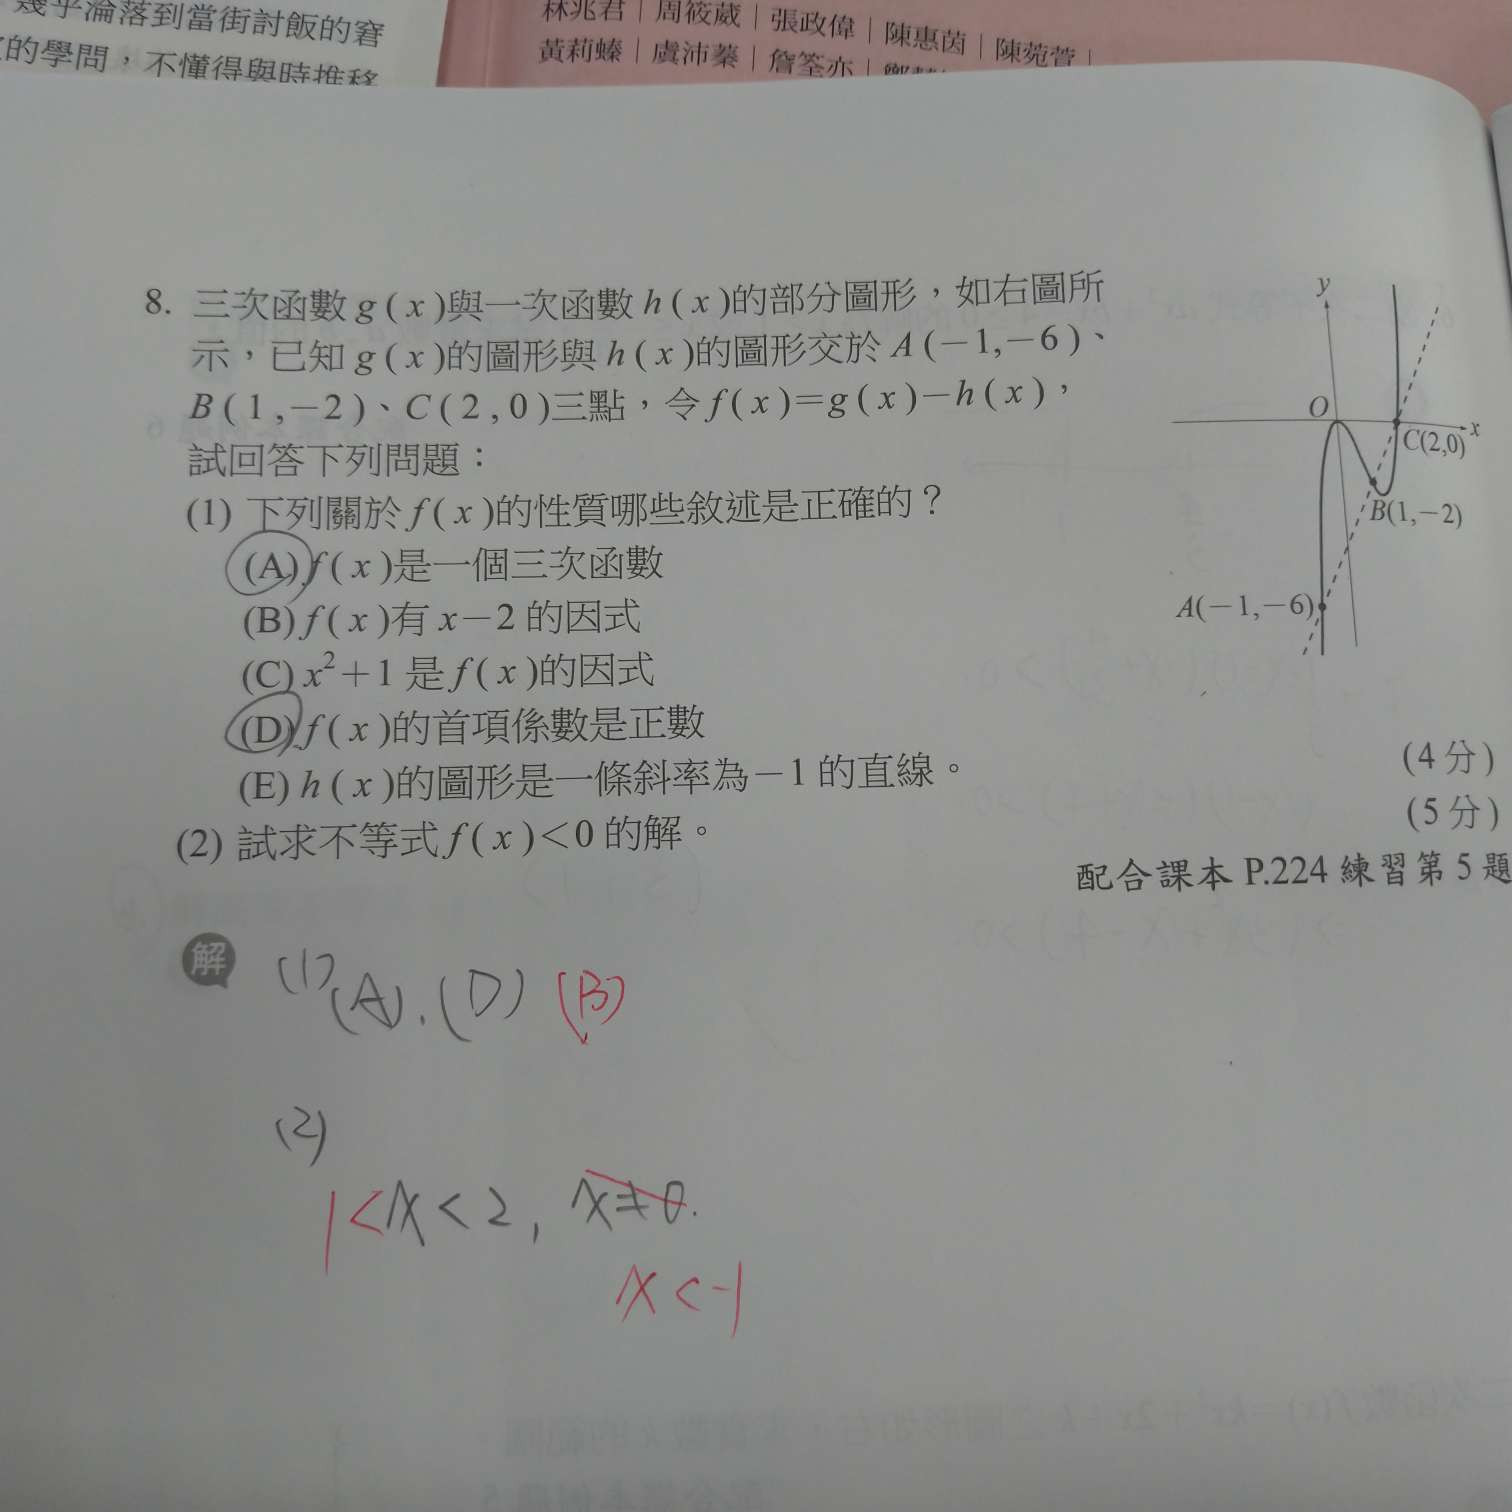 幾乎淪落到當街討飯的窘
的學問，不懂得與時推移
林兆君｜周筱葳｜張政偉｜陳惠茵｜陳菀萱｜
黃莉蓁｜虞沛蓁｜詹筌亦｜
8. 三次函數 g ( x )與一次函數 h ( x )的部分圖形，如右圖所
示，已知 g ( x )的圖形與 h ( x )的圖形交於 A (－1,－6)、
B ( 1 ,－2 )、C ( 2 , 0 )三點，令 f ( x )＝g ( x )－h ( x )，
試回答下列問題：
(1) 下列關於 f ( x )的性質哪些敘述是正確的？
(A) f ( x )是一個三次函數
(B) f ( x )有 x－2 的因式
(C) x²＋1 是 f ( x )的因式
(D) f ( x )的首項係數是正數
(E) h ( x )的圖形是一條斜率為－1 的直線。
(4 分)
(2) 試求不等式 f ( x )＜0 的解。
(5 分)
配合課本 P.224 練習第 5 題
y
O
x
C(2,0)
B(1,－2)
A(－1,－6)
解
(1) (A).(D) (B)
(2)
1<x<2, x≠0.
x<-1